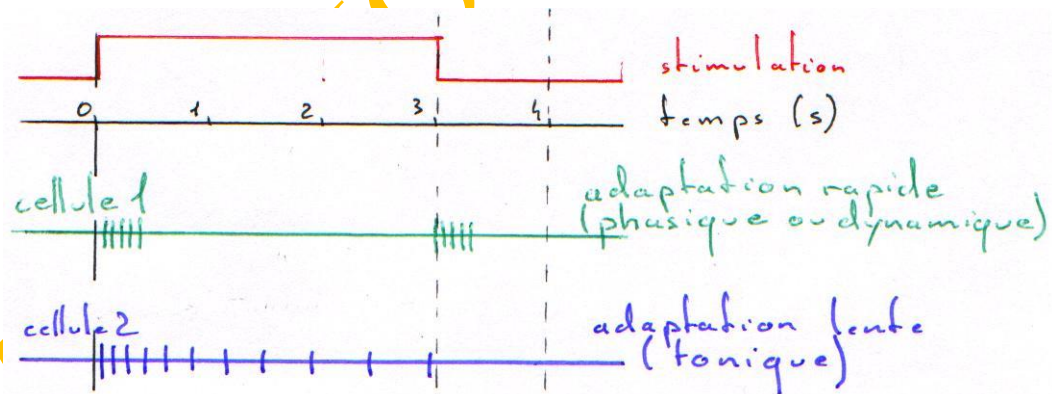 stimulation
0 1 2 3 4
temps (s)
cellule 1
adaptation rapide
(phasique ou dynamique)
cellule 2
adaptation lente
(tonique)